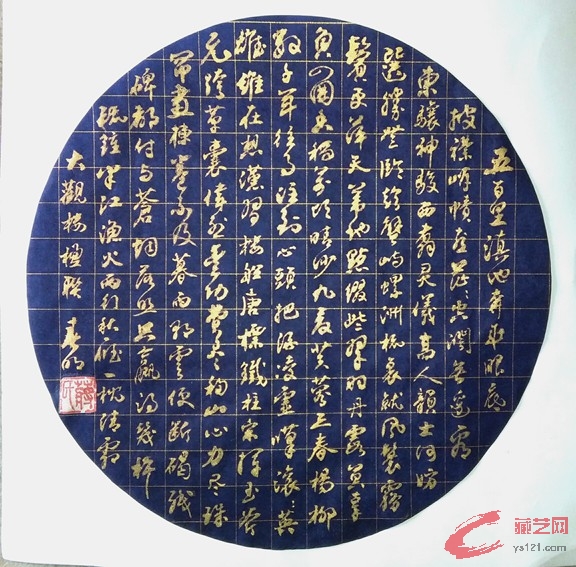 五百里滇池奔来眼底
披襟岸帻喜茫茫空阔无边看
東驤神駿西翥灵儀高人韻士何妨
選勝登臨趁蟹屿螺洲梳裹就风鬟霧
鬢更苹天苇地點缀些翠羽丹霞莫辜
负四圍香稻萬顷晴沙九夏芙蓉三春楊柳
数千年往事注到心頭把酒凌虚嘆滚滚英
雄誰在想漢習楼船唐標鐵柱宋揮玉斧
元跨革囊偉烈丰功費尽移山心力尽珠
帘畫棟卷不及暮雨朝雲便断碣残
碑都付与蒼烟落照只赢得幾杵
疏鐘半江漁火两行秋雁一枕清霜
大觀楼楹联 春明
藏艺网
ys121.com